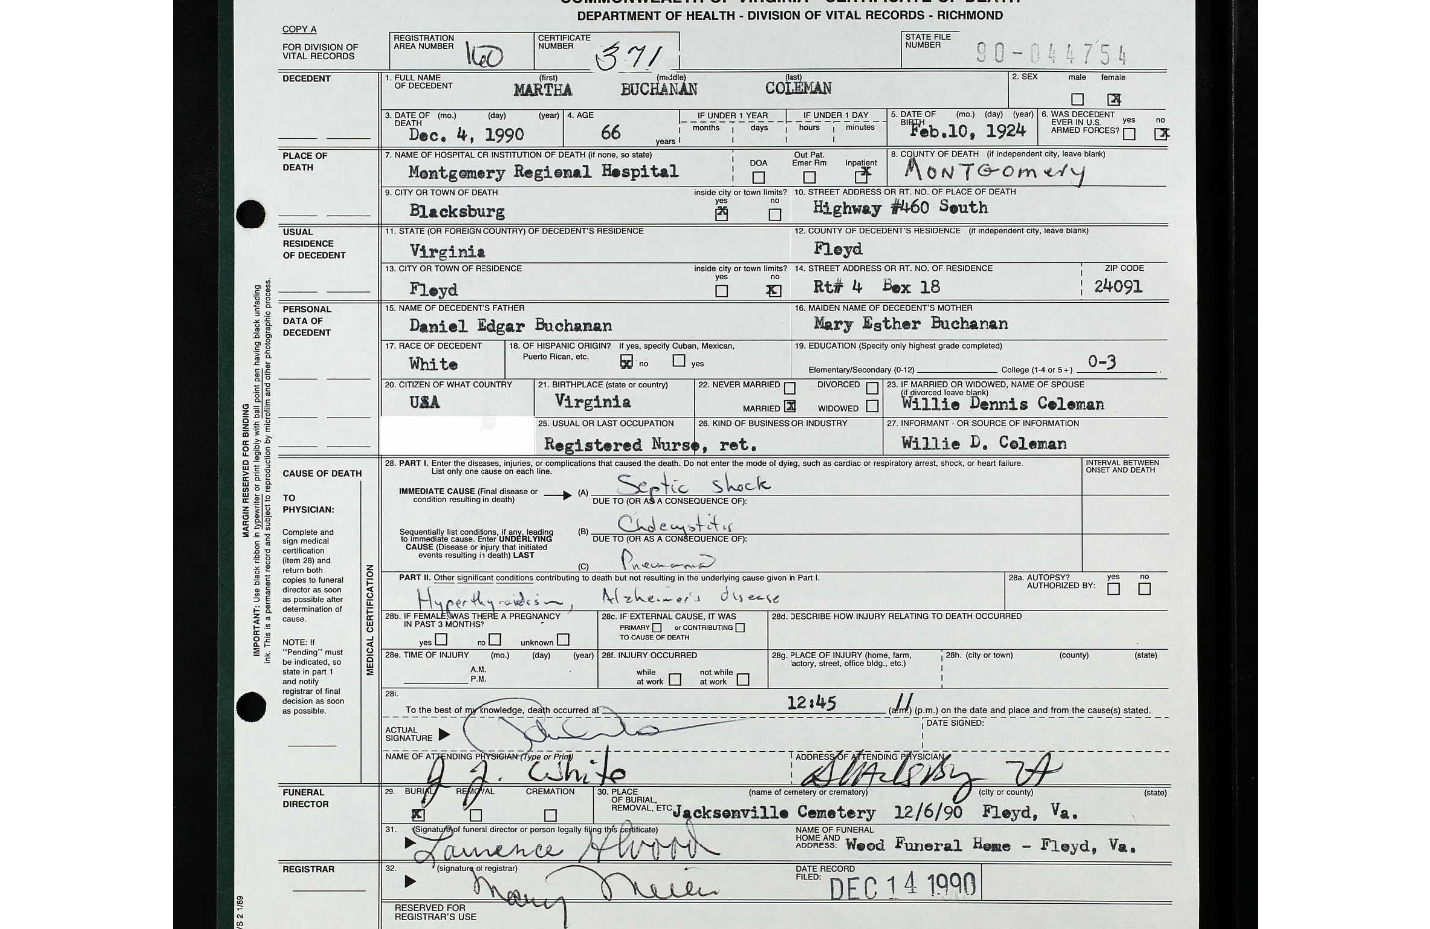 DEPARTMENT OF HEALTH - DIVISION OF VITAL RECORDS - RICHMOND
COPY A
FOR DIVISION OF VITAL RECORDS
REGISTRATION AREA NUMBER 160
CERTIFICATE NUMBER 371
STATE FILE NUMBER 90-044754
DECEDENT
1. FULL NAME OF DECEDENT (first) (middle) (last)
MARTHA BUCHANAN COLEMAN
2. SEX male female
3. DATE OF DEATH (mo.) (day) (year) Dec. 4, 1990
4. AGE 66 years
IF UNDER 1 YEAR months days
IF UNDER 1 DAY hours minutes
5. DATE OF BIRTH (mo.) (day) (year) Feb.10, 1924
6. WAS DECEDENT EVER IN U.S. ARMED FORCES? yes no
PLACE OF DEATH
7. NAME OF HOSPITAL OR INSTITUTION OF DEATH (if none, so state)
Montgomery Regional Hospital
DOA Out Pat. Emer Rm Inpatient
8. COUNTY OF DEATH (if independent city, leave blank)
MONTGomery
9. CITY OR TOWN OF DEATH inside city or town limits? yes no
Blacksburg
10. STREET ADDRESS OR RT. NO. OF PLACE OF DEATH
Highway #460 South
USUAL RESIDENCE OF DECEDENT
11. STATE (OR FOREIGN COUNTRY) OF DECEDENT'S RESIDENCE
Virginia
12. COUNTY OF DECEDENT'S RESIDENCE (if independent city, leave blank)
Floyd
13. CITY OR TOWN OF RESIDENCE inside city or town limits? yes no
Floyd
14. STREET ADDRESS OR RT. NO. OF RESIDENCE ZIP CODE
Rt# 4 Box 18 24091
PERSONAL DATA OF DECEDENT
15. NAME OF DECEDENT'S FATHER
Daniel Edgar Buchanan
16. MAIDEN NAME OF DECEDENT'S MOTHER
Mary Esther Buchanan
17. RACE OF DECEDENT
White
18. OF HISPANIC ORIGIN? If yes, specify Cuban, Mexican, Puerto Rican, etc. no yes
19. EDUCATION (Specify only highest grade completed)
Elementary/Secondary (0-12) College (1-4 or 5+) 0-3
20. CITIZEN OF WHAT COUNTRY
USA
21. BIRTHPLACE (state or country)
Virginia
22. NEVER MARRIED DIVORCED
MARRIED WIDOWED
23. IF MARRIED OR WIDOWED, NAME OF SPOUSE (if divorced leave blank)
Willie Dennis Coleman
25. USUAL OR LAST OCCUPATION
Registered Nurse, ret.
26. KIND OF BUSINESS OR INDUSTRY
27. INFORMANT - OR SOURCE OF INFORMATION
Willie D. Coleman
CAUSE OF DEATH
TO PHYSICIAN:
Complete and sign medical certification (item 28) and return both copies to funeral director as soon as possible after determination of cause.
NOTE: If "Pending" must be indicated, so state in part 1 and notify registrar of final decision as soon as possible.
MEDICAL CERTIFICATION
MARGIN RESERVED FOR BINDING
IMPORTANT: Use black ribbon in typewriter or print legibly with ball point pen having black unfading ink. This is a permanent record and subject to reproduction by microfilm and other photographic process.
28. PART I. Enter the diseases, injuries, or complications that caused the death. Do not enter the mode of dying, such as cardiac or respiratory arrest, shock, or heart failure.
List only one cause on each line.
INTERVAL BETWEEN ONSET AND DEATH
IMMEDIATE CAUSE (Final disease or condition resulting in death) (A) Septic Shock
DUE TO (OR AS A CONSEQUENCE OF):
Sequentially list conditions, if any, leading to immediate cause. Enter UNDERLYING CAUSE (Disease or injury that initiated events resulting in death) LAST
(B) Cholecystitis
DUE TO (OR AS A CONSEQUENCE OF):
(C) Pneumonia
PART II. Other significant conditions contributing to death but not resulting in the underlying cause given in Part I.
Hyperthyroidism, Alzheimer's disease
28a. AUTOPSY? AUTHORIZED BY: yes no
28b. IF FEMALE, WAS THERE A PREGNANCY IN PAST 3 MONTHS? yes no unknown
28c. IF EXTERNAL CAUSE, IT WAS PRIMARY or CONTRIBUTING TO CAUSE OF DEATH
28d. DESCRIBE HOW INJURY RELATING TO DEATH OCCURRED
28e. TIME OF INJURY (mo.) (day) (year) A.M. P.M.
28f. INJURY OCCURRED while at work not while at work
28g. PLACE OF INJURY (home, farm, factory, street, office bldg., etc.)
28h. (city or town) (county) (state)
28i.
To the best of my knowledge, death occurred at 12:45 (a.m.) (p.m.) on the date and place and from the cause(s) stated.
ACTUAL SIGNATURE
DATE SIGNED:
NAME OF ATTENDING PHYSICIAN (Type or Print)
J. J. White
ADDRESS OF ATTENDING PHYSICIAN
Blacksburg VA
FUNERAL DIRECTOR
29. BURIAL REMOVAL CREMATION
30. PLACE OF BURIAL, REMOVAL, ETC. (name of cemetery or crematory) (city or county) (state)
Jacksonville Cemetery 12/6/90 Floyd, Va.
31. (Signature of funeral director or person legally filing this certificate)
Lawrence
NAME OF FUNERAL HOME AND ADDRESS: Wood Funeral Home - Floyd, Va.
REGISTRAR
32. (signature of registrar)
Mary
DATE RECORD FILED: DEC 14 1990
RESERVED FOR REGISTRAR'S USE
VS 2 1/89